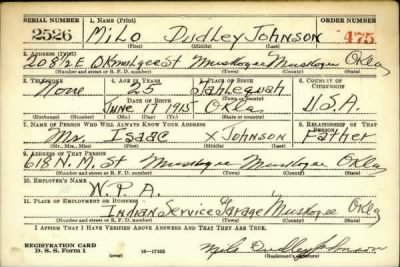 SERIAL NUMBER 1. NAME (Print) ORDER NUMBER
2526 Milo Dudley Johnson 475
(First) (Middle) (Last)
2. ADDRESS (Print)
208½ E Okmulgee St Muskogee Muskogee Okla
(Number and street or R. F. D. number) (Town) (County) (State)
3. TELEPHONE 4. AGE IN YEARS 5. PLACE OF BIRTH 6. COUNTRY OF CITIZENSHIP
None 25 Tahlequah
DATE OF BIRTH (Town or county)
June 17 1915 Okla U.S.A.
(Exchange) (Number) (Mo.) (Day) (Yr.) (State or country)
7. NAME OF PERSON WHO WILL ALWAYS KNOW YOUR ADDRESS 8. RELATIONSHIP OF THAT PERSON
Mr. Isaac X Johnson Father
(Mr., Mrs., Miss) (First) (Middle) (Last)
9. ADDRESS OF THAT PERSON
618 N. M. St Muskogee Muskogee Okla
(Number and street or R. F. D. number) (Town) (County) (State)
10. EMPLOYER'S NAME
W.P.A.
11. PLACE OF EMPLOYMENT OR BUSINESS
Indian Service Garage Muskogee Okla
(Number and street or R. F. D. number) (Town) (County) (State)
I AFFIRM THAT I HAVE VERIFIED ABOVE ANSWERS AND THAT THEY ARE TRUE.
REGISTRATION CARD
D. S. S. Form 1 16—17105 Milo Dudley Johnson
(Registrant's signature)